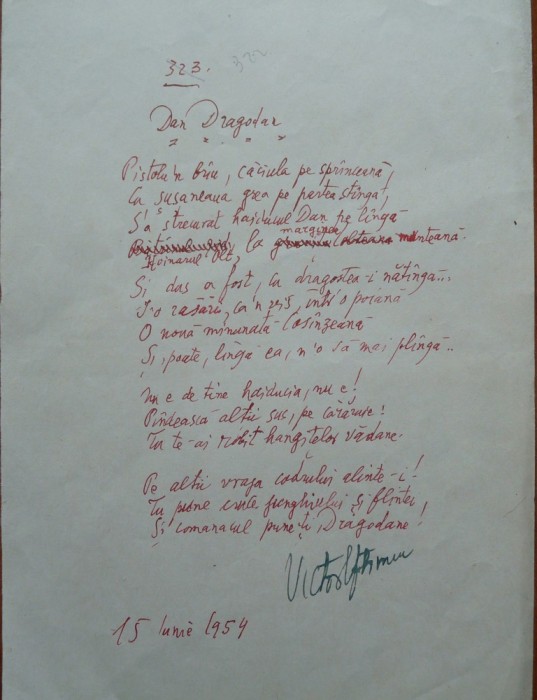 323.
322
Dan Dragodan
Pistolu'n brîu, căciula pe sprînceană,
Ca susaneaua grea pe partea stîngă,
S'a strecurat haiducul Dan pe lîngă
Hoinarul Olt, la marginea munteană.
Și dus a fost, ca dragostea-i nătîngă...
I-o răsări, ca'n vis, într'o poiană
O nouă minunată Cosînzeană
Și, poate, lîngă ea, n'o să mai plîngă..
Nu e de tine haiducia, nu e!
Pîndească alții sus, pe cărăruie!
Tu te-ai robit hangițelor vădane.
Pe alții vraja codrului alinte-i!
Tu pune cruce junghiului și flintei,
Și comanacul pune-ți, Dragodane!
Victor Eftimiu
15 Iunie 1954